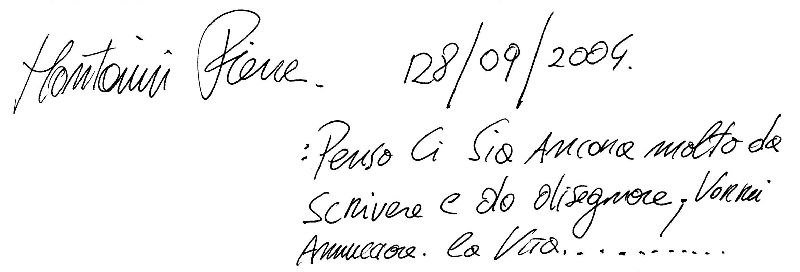 Montaini Piene. 28/09/2004.
: Penso Ci Sia Ancora molto da
Scrivere e da disegnare, Vorrei
la Vita............